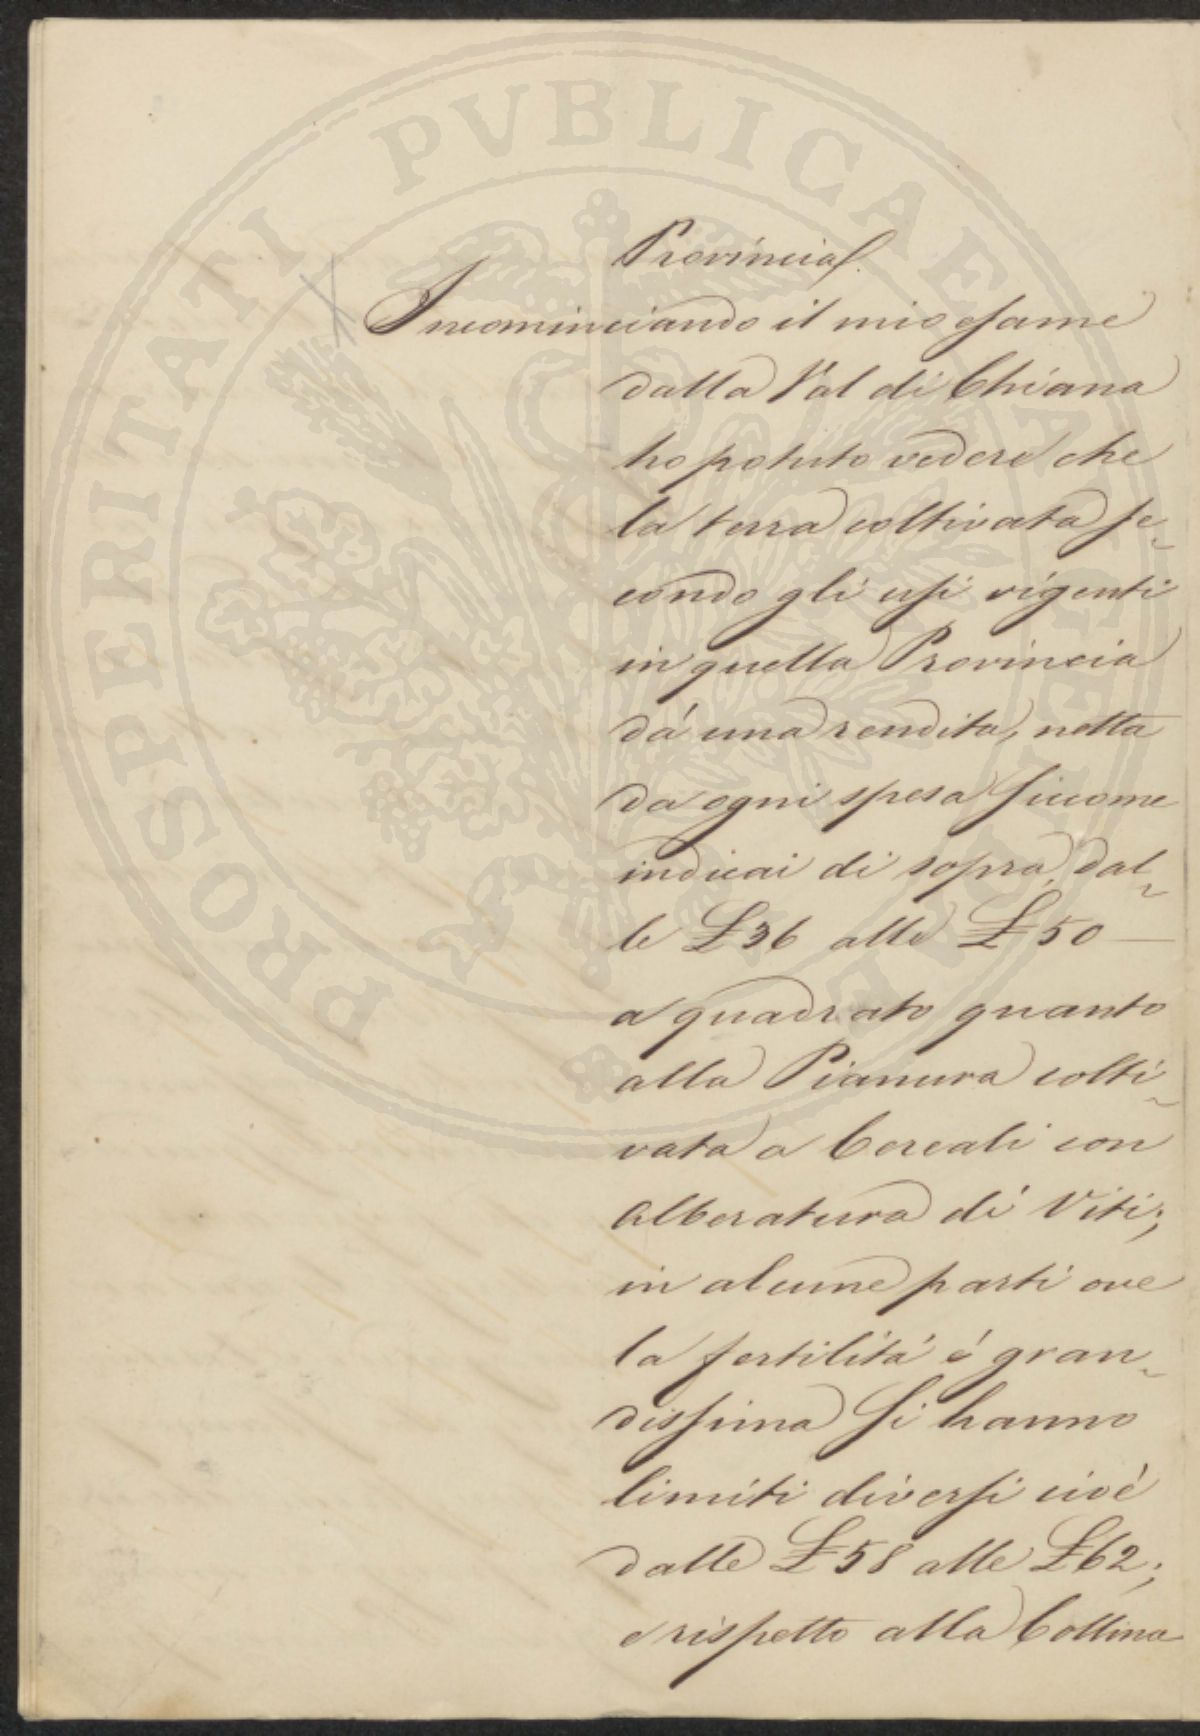 Provincia.
Incominciando il mio esame
dalla Val di Chiana
ho potuto vedere che
la terra coltivata se-
condo gli usi vigenti
in quella Provincia
dà una rendita, netta
da ogni spesa siccome
indicai di sopra, dal-
le £ 36 alle £ 50 —
a quadrato quanto
alla Pianura colti-
vata a Cereali con
Alberatura di Viti;
in alcune parti ove
la fertilità è gran-
dissima si hanno
limiti diversi cioè
dalle £ 58 alle £ 62;
e rispetto alla Collina
PROSPERITATI PVBLICAE AVGENDAE